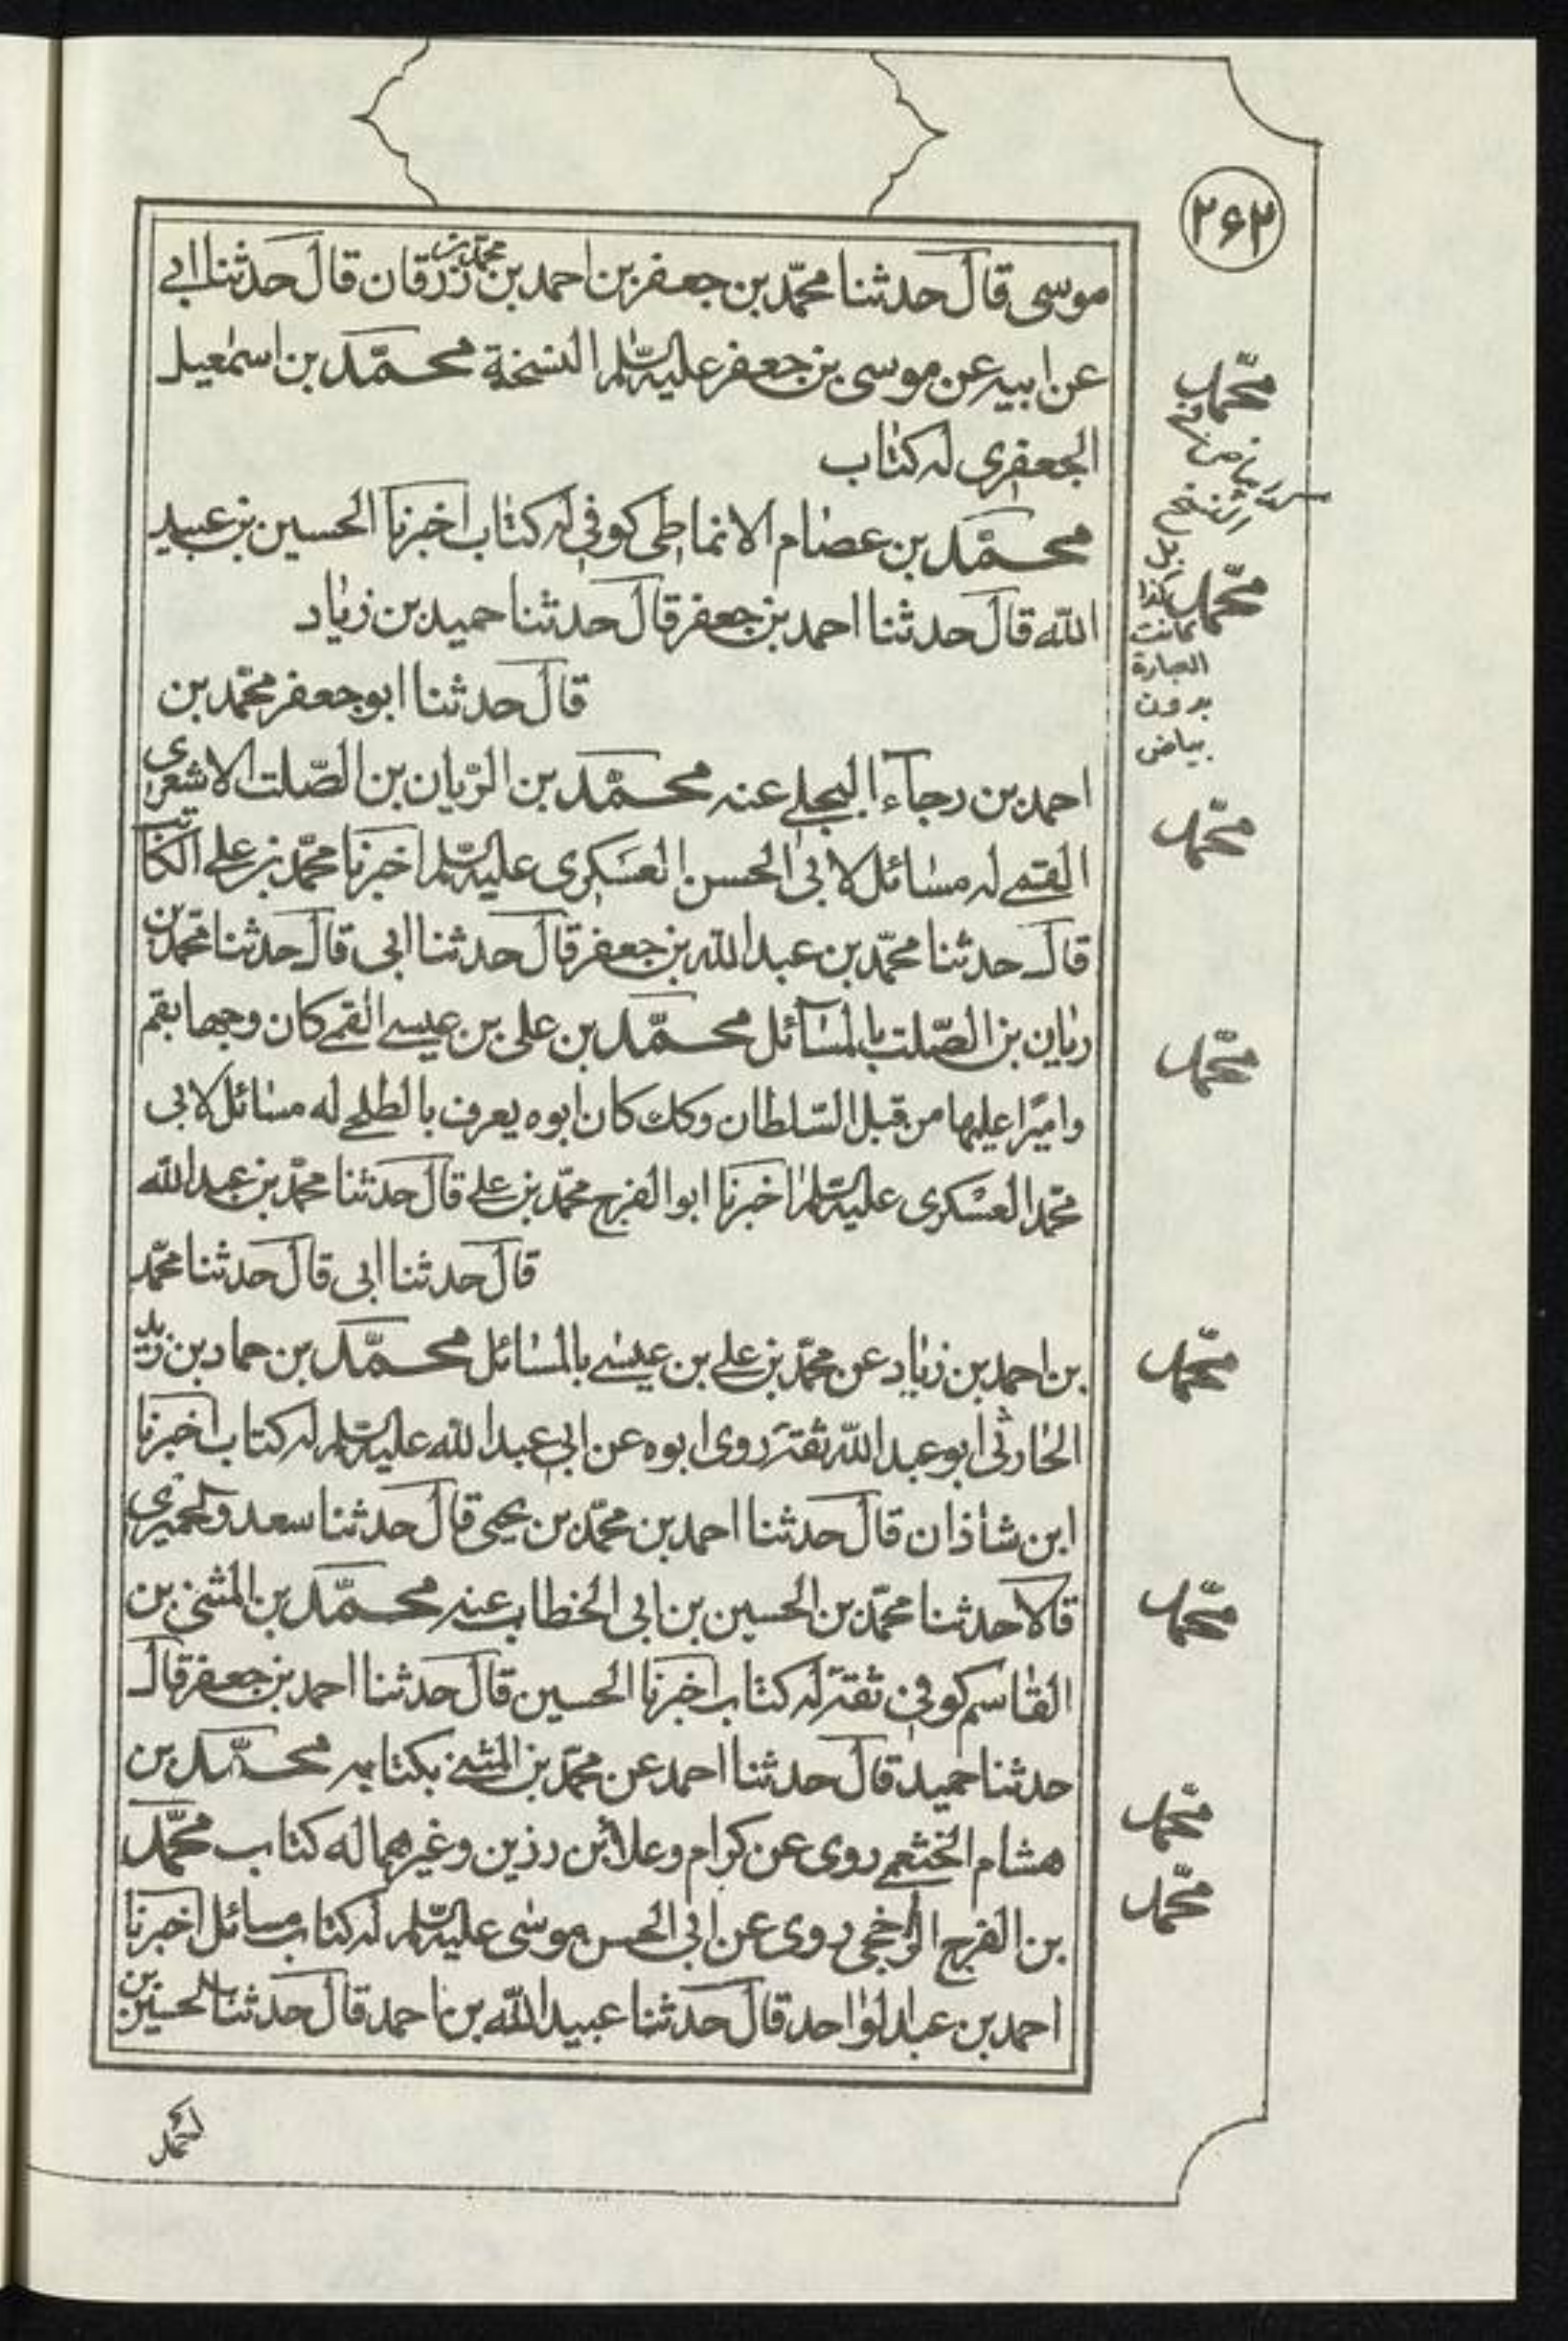 ۲۶۲
موسى قال حدثنا محمّد بن جعفر بن احمد بن زرقان قال حدثنا ابي
عن ابيه عن موسى بن جعفر عليه السّلم النسخة محمّد بن اسمعيل
الجعفرى له كتاب
محمّد بن عصام الانماطى كوفى له كتاب اخبرنا الحسين بن عبيد
الله قال حدثنا احمد بن جعفر قال حدثنا حميد بن زياد
قال حدثنا ابو جعفر محمّد بن
احمد بن رجاء البجلي عنه محمّد بن الرّيان بن الصّلت الاشعرى
القمى له مسائل لابى الحسن العسكرى عليه السّلم اخبرنا محمّد بن على الكاتب
قال حدثنا محمّد بن عبد الله بن جعفر قال حدثنا ابى قال حدثنا محمّد بن
ريان بن الصّلت بالمسآئل محمّد بن على بن عيسى القمى كان وجها بقم
واميرًا عليها من قبل السّلطان وكك كان ابوه يعرف بالطلحى له مسائل لابى
محمّد العسكرى عليه السّلم اخبرنا ابو الفرج محمّد بن على قال حدثنا محمّد بن عبد الله
قال حدثنا ابى قال حدثنا محمّد
بن احمد بن زياد عن محمّد بن على بن عيسى بالمسائل محمّد بن حماد بن زيد
الحارثى ابو عبد الله ثقة روى ابوه عن ابى عبد الله عليه السّلم له كتاب اخبرنا
ابن شاذان قال حدثنا احمد بن محمّد بن يحيى قال حدثنا سعد والحميرى
قالا حدثنا محمّد بن الحسين بن ابى الخطاب عنه محمّد بن المثنى بن
القاسم كوفى ثقة له كتاب اخبرنا الحسين قال حدثنا احمد بن جعفر قال
حدثنا حميد قال حدثنا احمد عن محمّد بن المثنى بكتابه محمّد بن
هشام الخثعمى روى عن كرام وعلا بن رزين وغيرهما له كتاب محمّد
بن الفرج الرّخجى روى عن ابى الحسن موسى عليه السّلم له كتاب مسائل اخبرنا
احمد بن عبد الواحد قال حدثنا عبيد الله بن احمد قال حدثنا الحسين بن
محمّد
محمّد
كذا
كانت
العبارة
بدون
بياض
محمّد
محمّد
محمّد
محمّد
محمّد
محمّد